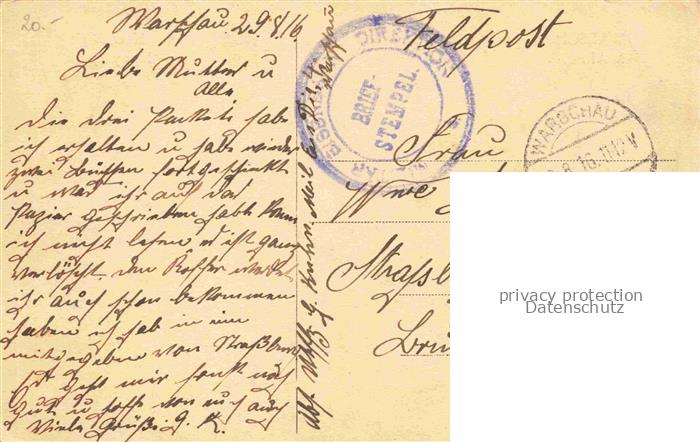 20.-
Warschau 29.8.16
Liebe Mutter u
Alle
Die drei Packete habe
ich erhalten u habe wieder
zwei Büchsen fortgeschickt
u was ihr auf das
Papier geschrieben habt kann
ich nicht lesen es ist ganz
verlöscht. den Koffer werdet
ihr auch schon bekommen
haben ich hab in ein
mitgegeben von Straßburg
Es geht mir sonst noch
Gut u hoffe von euch auch
Viele Grüße G. K.
Abs.
Mil.
Warschau
DIREKTION
BRIEF-
STEMPEL.
Feldpost
WARSCHAU
8.16.11-12V
Frau
Wwe
Strassb
privacy protection
Datenschutz